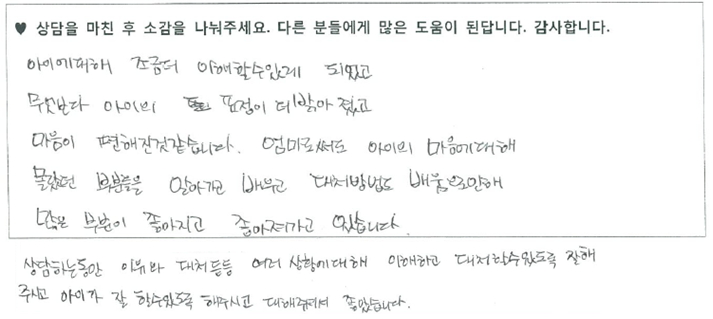 ♥ 상담을 마친 후 소감을 나눠주세요. 다른 분들에게 많은 도움이 된답니다. 감사합니다.
아이에대해 조금더 이해할수있게 되었고
무엇보다 아이의 표정이 더밝아 졌고
마음이 편해진것같습니다. 엄마로써도 아이의 마음에대해
몰랐던 부분들을 알아가고 배우고 대처방법도 배움으로인해
많은 부분이 좋아지고 좋아져가고 있습니다.
상담하는동안 이유와 대처등등 여러 상황에대해 이해하고 대처할수있도록 잘해
주시고 아이가 잘 할수있도록 해주시고 대해주셔서 좋았습니다.